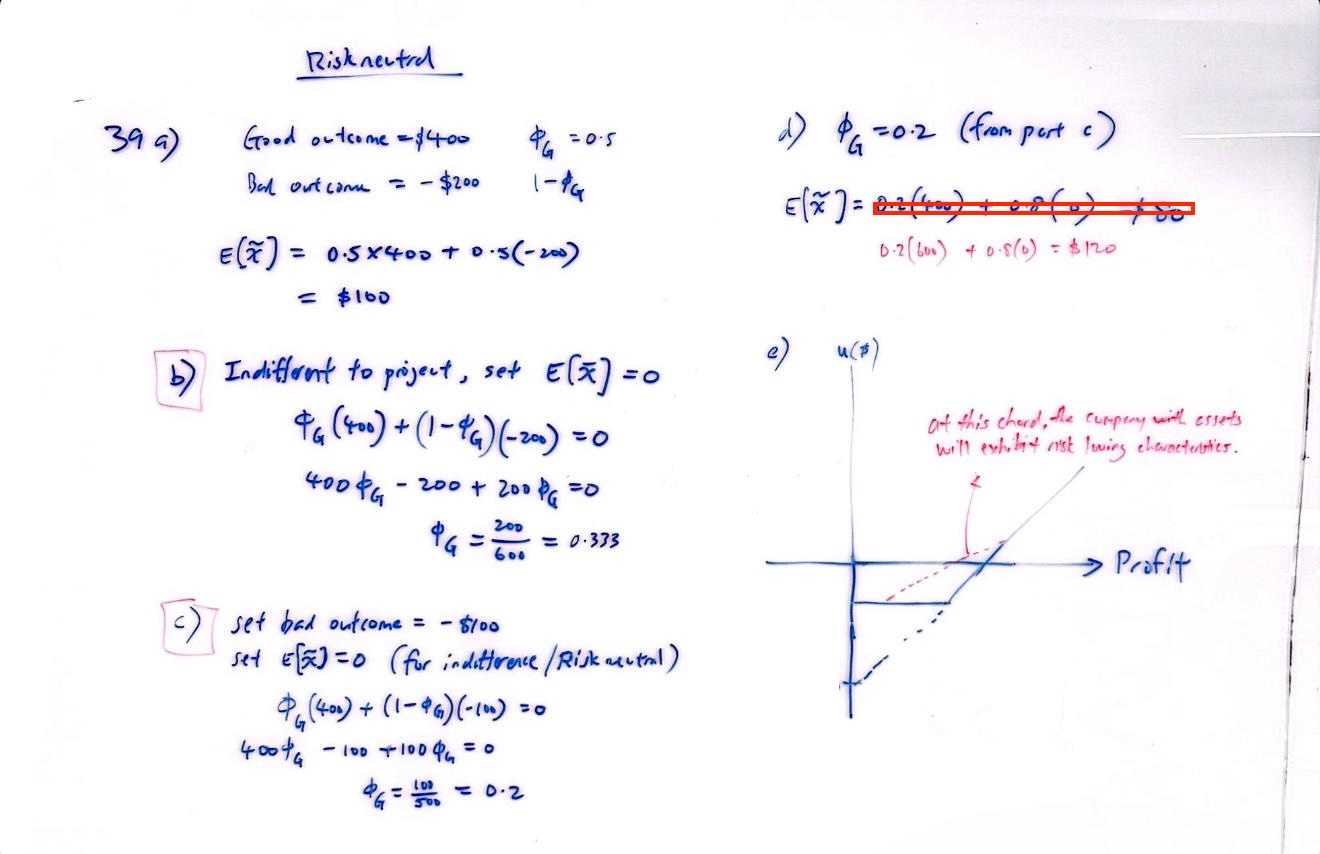 Risk neutral
39 a) Good outcome = $400 ϕG = 0.5
Bad outcome = -$200 1-ϕG
E[x̃] = 0.5×400 + 0.5(-200)
= $100
b) Indifferent to project, set E[x̃] = 0
ϕG(400) + (1-ϕG)(-200) = 0
400ϕG - 200 + 200ϕG = 0
ϕG = 200/600 = 0.333
c) set bad outcome = -$100
set E[x̃] = 0 (for indifference/Risk neutral)
ϕG(400) + (1-ϕG)(-100) = 0
400ϕG - 100 + 100ϕG = 0
ϕG = 100/500 = 0.2
d) ϕG = 0.2 (from part c)
E[x̃] = 0.2(400) + 0.8(0) = $80
0.2(600) + 0.8(0) = $120
e) u($)
at this chord, the company with assets
will exhibit risk loving characteristics.
Profit